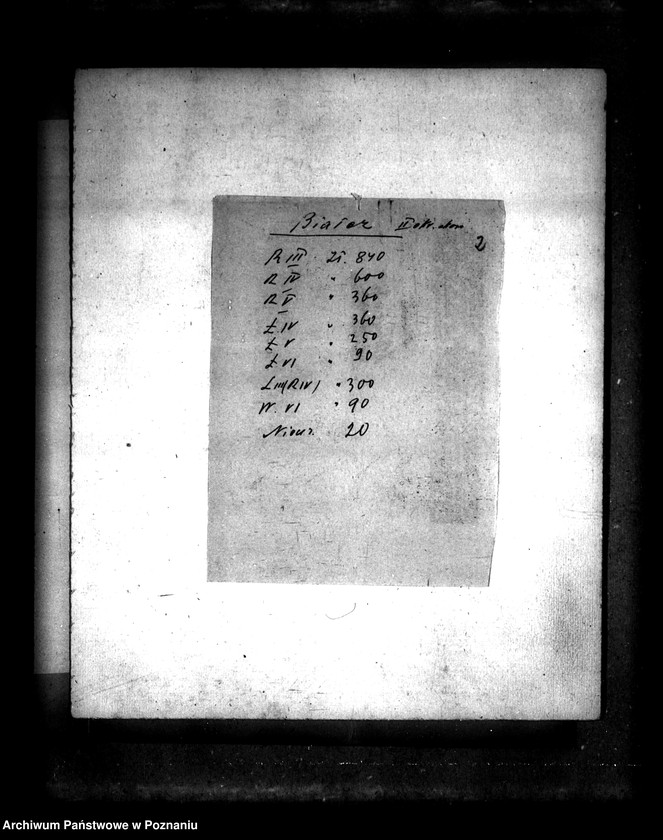 Białcz II okr. ekon.
2
R III zł. 840
R IV " 600
R V " 360
Ł IV " 360
Ł V " 250
Ł VI " 90
L III (R IV) " 300
W. VI " 90
Nieuż. 20
Archiwum Państwowe w Poznaniu